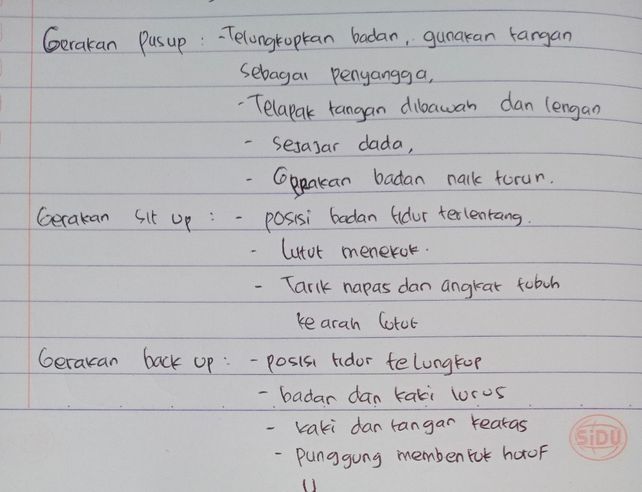 Gerakan Pusup : - Telungkupkan badan, gunakan tangan
sebagai penyangga,
- Telapak tangan dibawah dan lengan
- sejajar dada,
- Gerakan badan naik turun.
Gerakan sit up : - posisi badan tidur terlentang.
- lutut menekuk.
- Tarik napas dan angkat tubuh
ke arah lutut
Gerakan back up : - posisi tidur telungkup
- badan dan kaki lurus
- kaki dan tangan keatas
SiDU
- punggung membentuk huruf
U